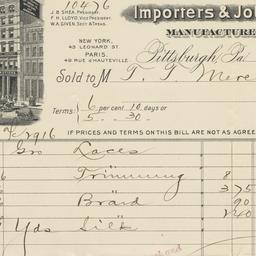 10476
Importers & Jo
J. B. SHEA, PRESIDENT.
F. H. LLOYD, VICE PRESIDENT.
W. A. GIVEN, SECY & TREAS.
MANUFACTURE
NEW YORK,
43 LEONARD ST.
PARIS.
49 RUE D'HAUTEVILLE
Pittsburgh, Pa.
Sold to M
Terms: 6 per cent. 10 days or
5 " 30 "
2916
IF PRICES AND TERMS ON THIS BILL ARE NOT AS AGREE
Gro Laces
" Trimming 8
" Braid 375
90
240
Yds Silk